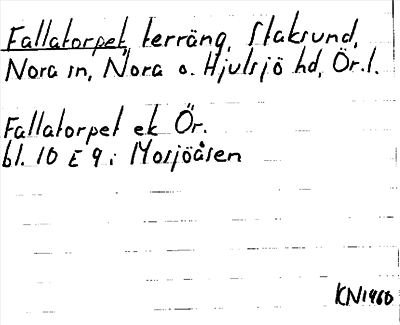 Fallatorpet, terräng, Staksund,
Nora sn, Nora o. Hjulsjö hd, Ör. l.
Fallatorpet ek Ör.
bl. 10 E 9 i Mosjöåsen
KN1960